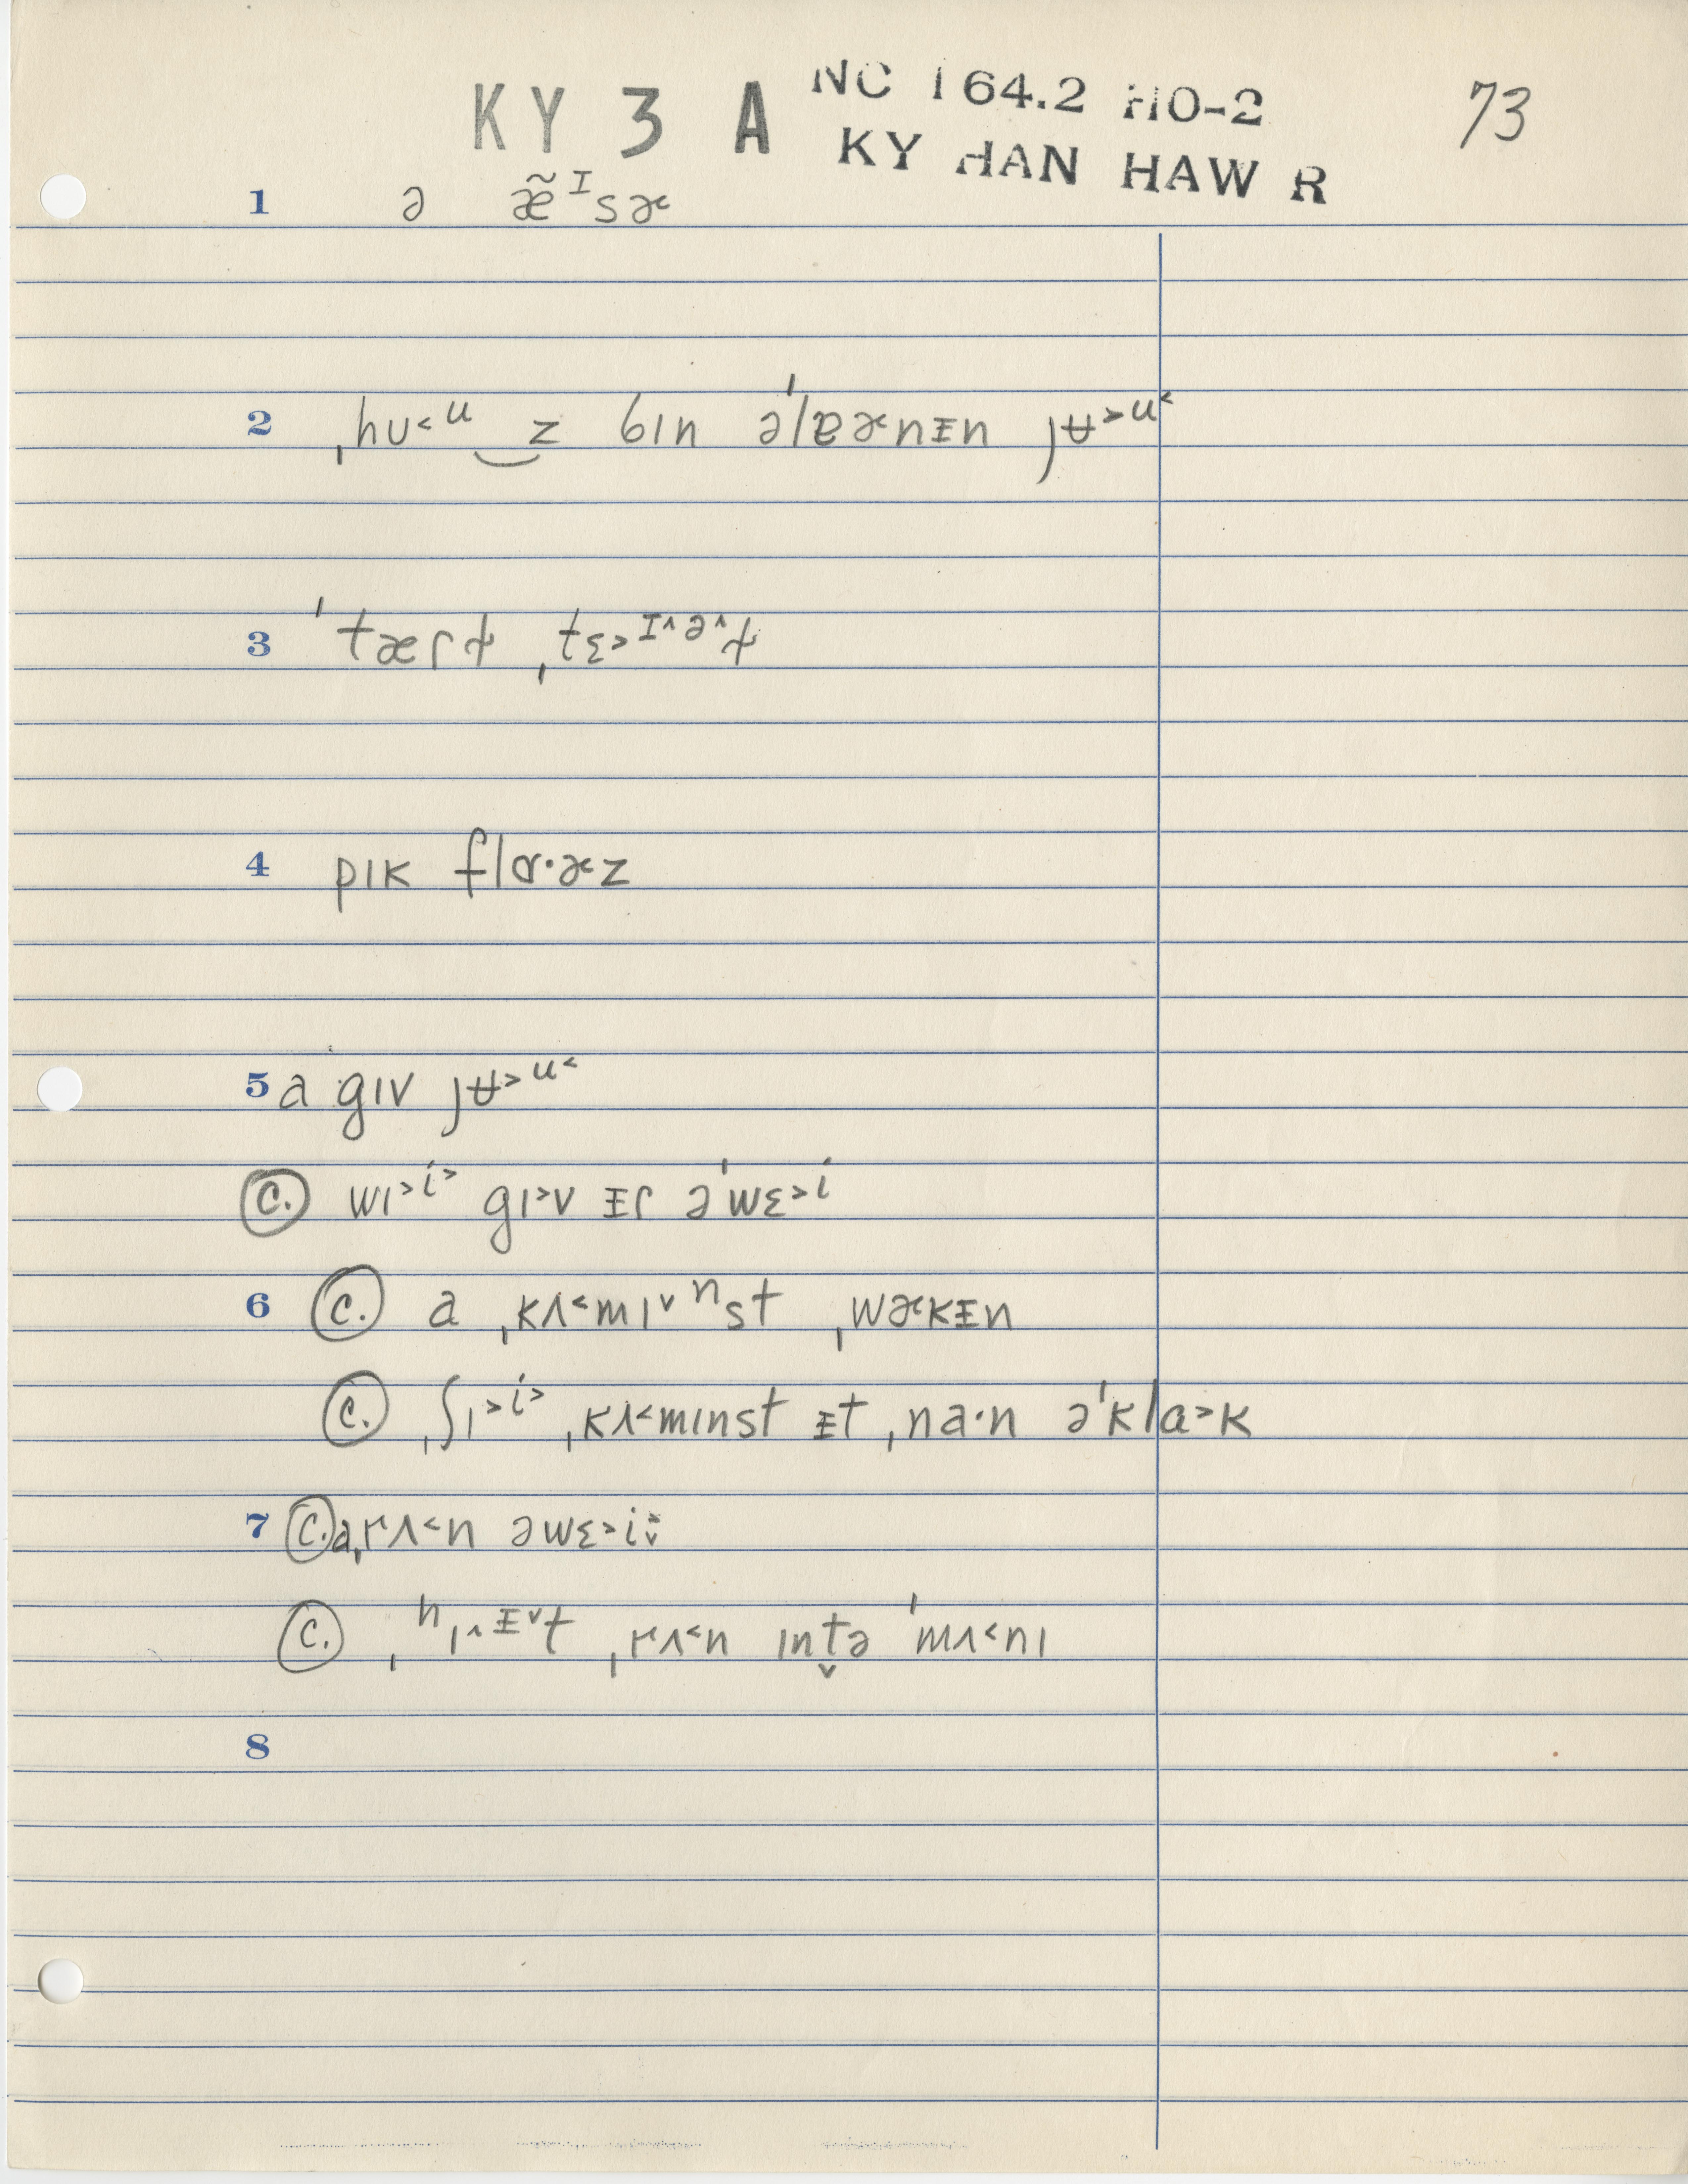 KY 3 A NC 164.2 HO-2 73
KY HAN HAW R
1 ə æ̃ᶦsɚ
2 ˌhʊ˂ᵘ‿z bɪn ə'lɐɚnɪ̵n jʉ˃ᵘ˂
3 'tæɾɬ ˌtɛ˃ᶦ˄ᵊ˅ɬ
4 pɪk flɑ·ɚz
5 a gɪv jʉ˃ᵘ˂
C. wɪ˃ⁱ˃ gɪ˃v ɪ̵ɾ ə'wɛ˃ⁱ
6 C. a ˌkʌ˂mɪ˅ⁿst ˌwɚkɪ̵n
C. ˌʃɪ˃ⁱ˃ ˌkʌ˂mɪnst ɪ̵t ˌna·n ə'klɑ˃k
7 C. aˌrʌ˂n əwɛ˃i˃˅
C. ˌʰɪ˄ᶦ̵˅t ˌrʌ˂n ɪnt̬ə 'mʌ˂nɪ
8